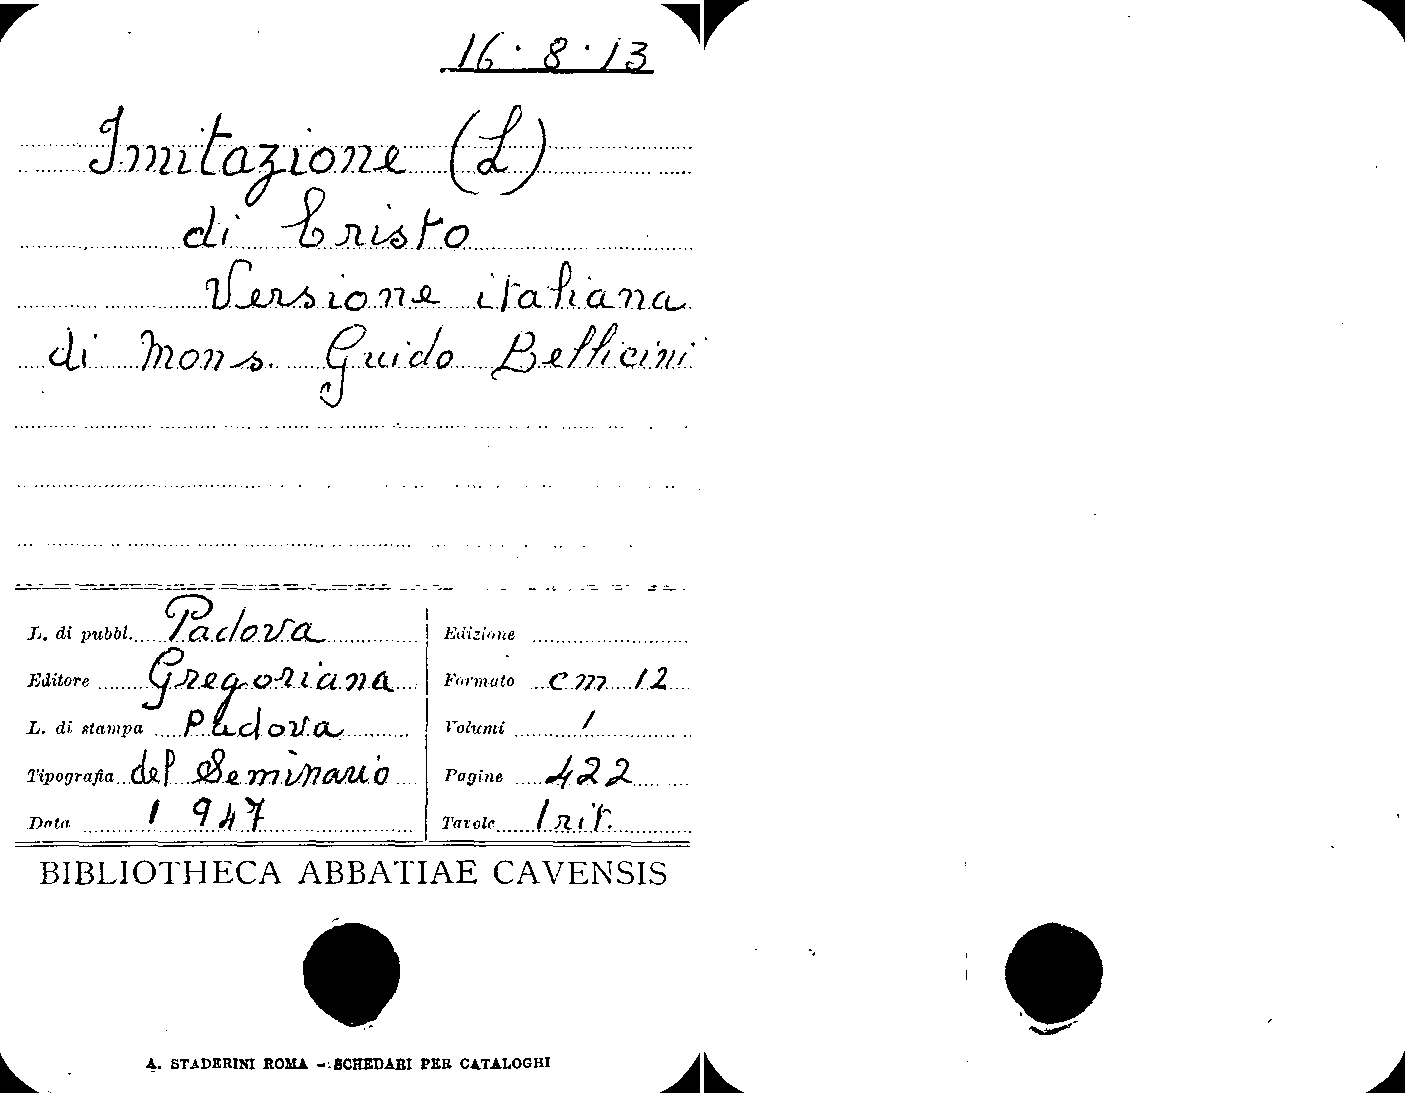 16·8·13
Imitazione (L)
di Cristo
Versione italiana
di Mons. Guido Bellicini
L. di pubbl. Padova
Editore Gregoriana
L. di stampa Padova
Tipografia del Seminario
Data 1947
Edizione
Formato cm 12
Volumi 1
Pagine 422
Tavole 1 rit.
BIBLIOTHECA ABBATIAE CAVENSIS
A. STADERINI ROMA - SCHEDARI PER CATALOGHI